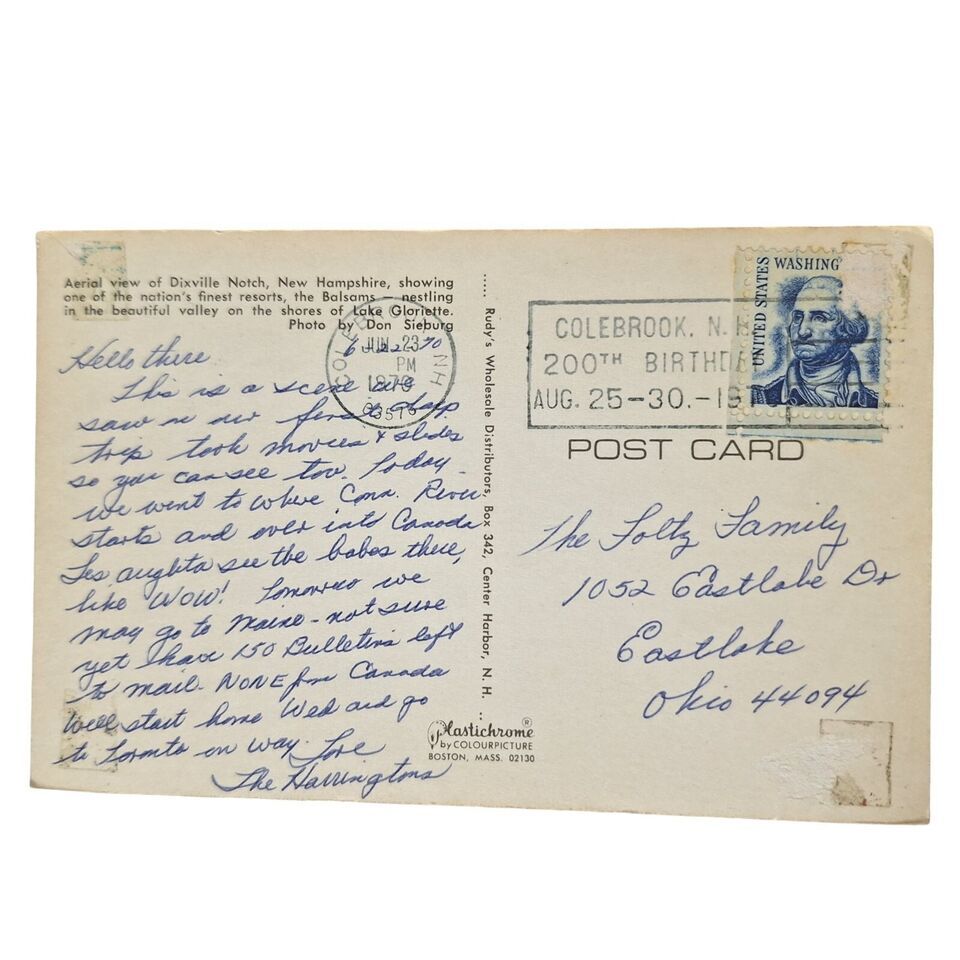 Aerial view of Dixville Notch, New Hampshire, showing
one of the nation's finest resorts, the Balsams nestling
in the beautiful valley on the shores of Lake Gloriette.
Photo by Don Sieburg
6-22-70
Hello there
This is a scene we
saw on our first days
trip took movies & slides
so you can see too. Today
we went to where Conn. River
starts and over into Canada
Les aughta see the babes there,
like WOW! Tomorrow we
may go to Maine - not sure
yet I have 150 Bulletins left
to mail. NONE from Canada
We'll start home Wed and go
to Toronto on way. Love
The Harringtons
COLEBROOK NH
JUN 23
PM
1970
03576
..... Rudy's Wholesale Distributors, Box 342, Center Harbor, N. H.
Plastichrome ®
by COLOURPICTURE
BOSTON, MASS. 02130
COLEBROOK, N. H.
200TH BIRTHD
AUG. 25-30.-19
UNITED STATES
WASHING
POST CARD
The Foltz Family
1052 Eastlake Dr
Eastlake
Ohio 44094